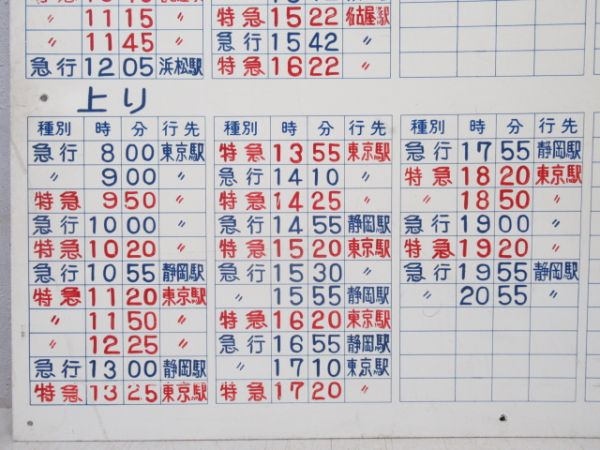 〃 11 15 〃
〃 11 45 〃
急行 12 05 浜松駅
特急 15 22 名古屋駅
急行 15 42 〃
特急 16 22 〃
上り
種別 時 分 行先
急行 8 00 東京駅
〃 9 00 〃
特急 9 50 〃
急行 10 00 〃
特急 10 20 〃
急行 10 55 静岡駅
特急 11 20 東京駅
〃 11 50 〃
〃 12 25 〃
急行 13 00 静岡駅
特急 13 25 東京駅
種別 時 分 行先
特急 13 55 東京駅
急行 14 10 〃
特急 14 25 〃
急行 14 55 静岡駅
特急 15 20 東京駅
急行 15 30 〃
〃 15 55 静岡駅
特急 16 20 東京駅
急行 16 55 静岡駅
〃 17 10 東京駅
特急 17 20 〃
種別 時 分 行先
急行 17 55 静岡駅
特急 18 20 東京駅
〃 18 50 〃
急行 19 00 〃
特急 19 20 〃
急行 19 55 静岡駅
〃 20 55 〃